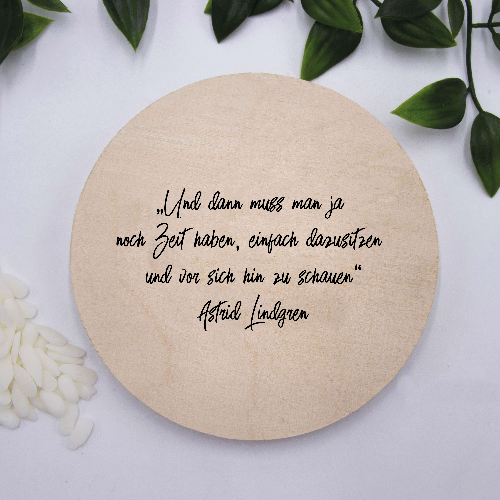 „Und dann muss man ja
noch Zeit haben, einfach dazusitzen
und vor sich hin zu schauen“
Astrid Lindgren